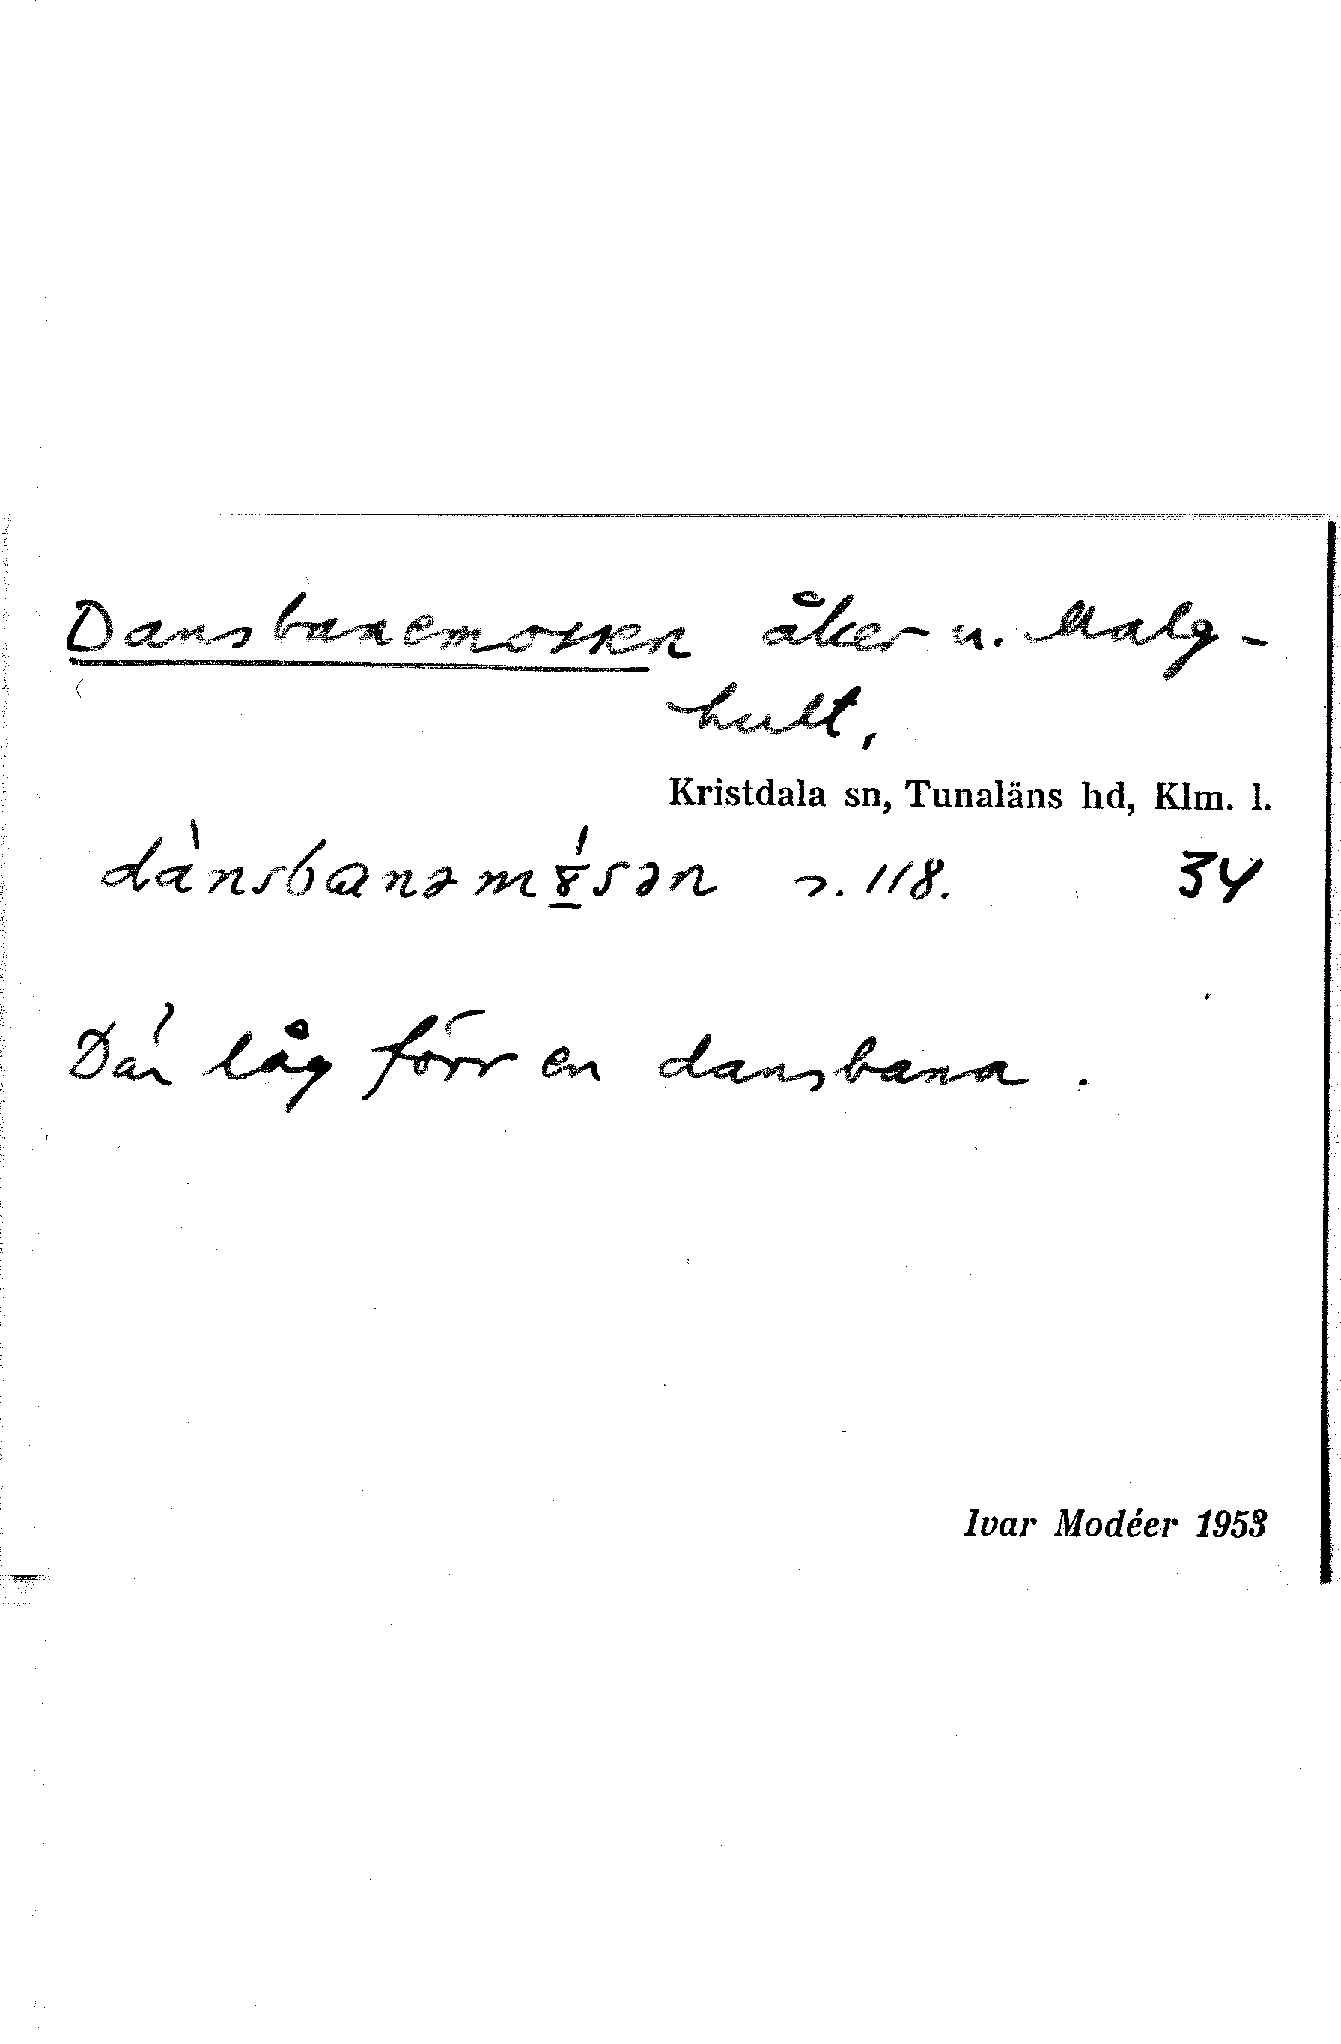 Dansbanemossen åker u. Malg-
hult,
Kristdala sn, Tunaläns hd, Klm. l.
dànsbɑnəm8́sən 34
Där låg förr en dansbana.
Ivar Modéer 1953